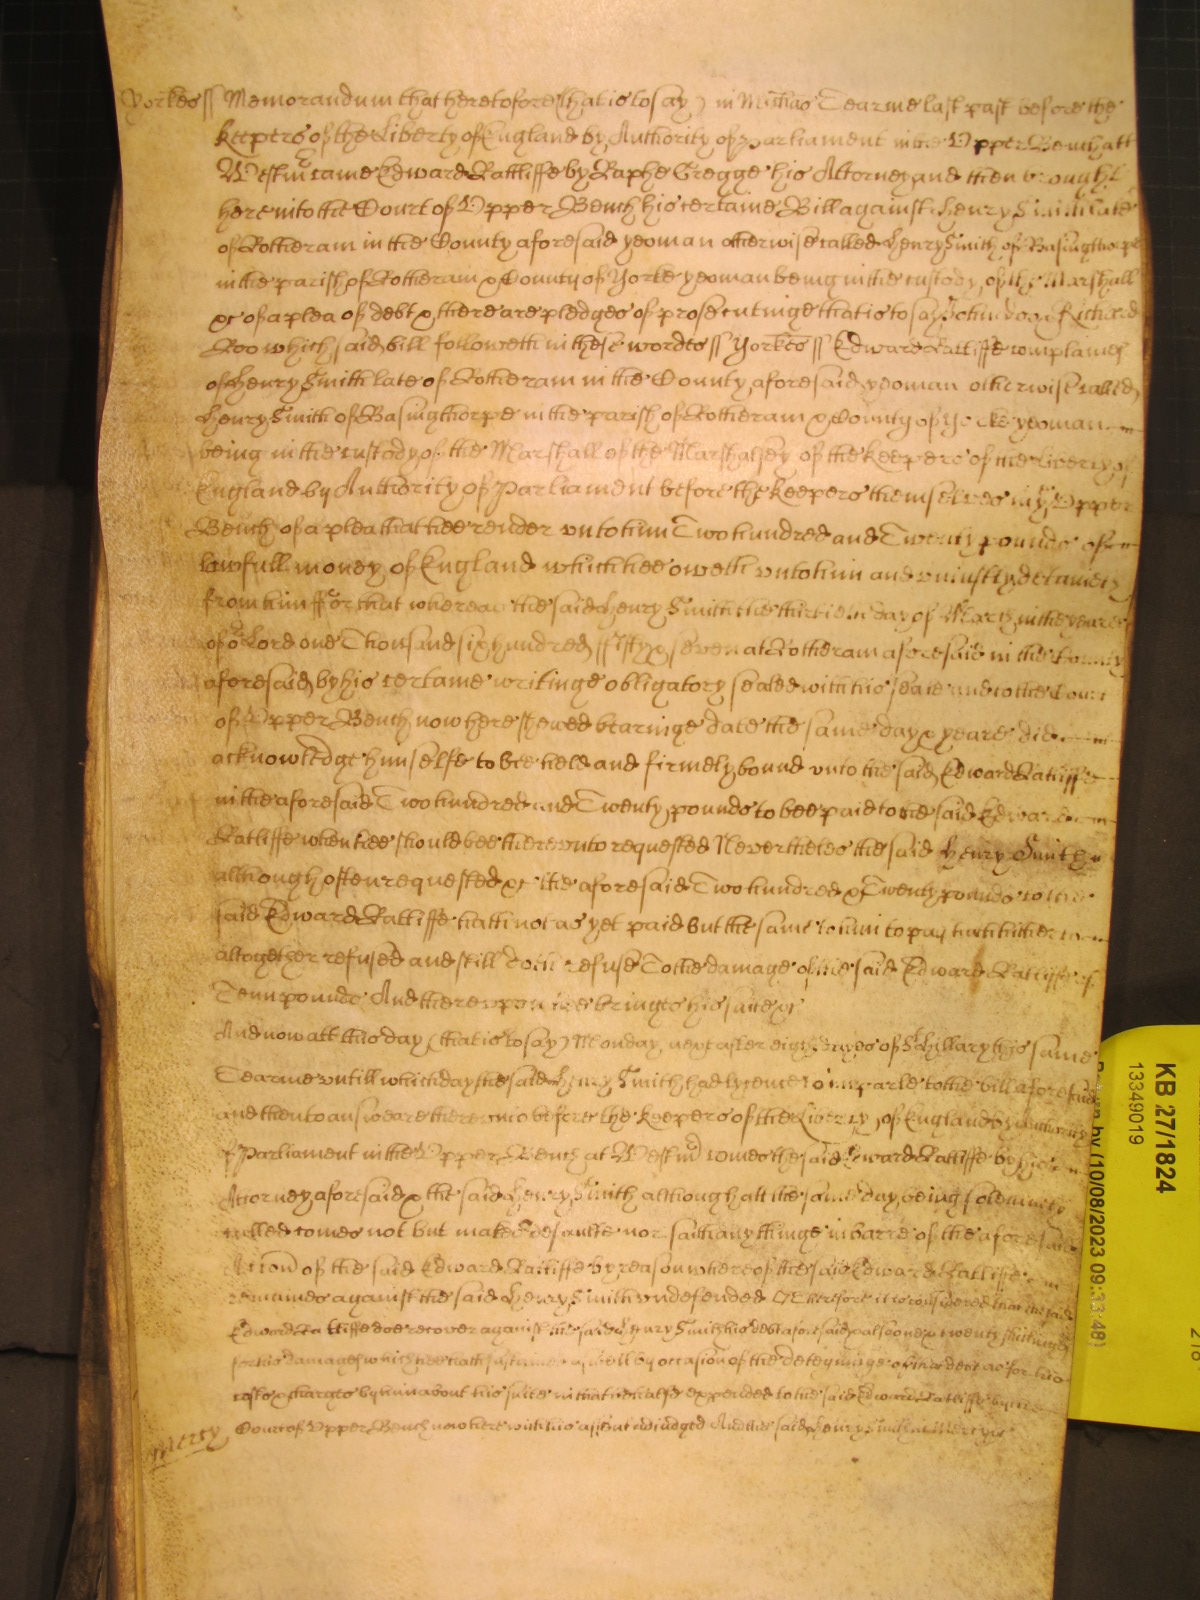 Yorkes ss Memorandum that heretofore (that is to say) in Michas Tearme last past before the
keepers of the Liberty of England by Authority of Parliament in the Upper Bench att
Westmr came Edward Ratliffe by Raphe Gregge his Attorney and then brought
here into the Court of Upper Bench his certaine Bill against Henry Smith late
of Rotheram in the County aforesaid yeoman otherwise called Henry Smith of Basingthorpe
in the parish of Rotheram & County of Yorke yeoman being in the custody of the Marshall
&c of a plea of debt & there are pledges of prosecutinge that is to say John Doo & Richard
Roo which said bill followeth in these wordes ss Yorkes ss Edward Ratliffe complaines
of Henry Smith late of Rotheram in the County aforesaid yeoman otherwise called
Henry Smith of Basingthorpe in the parish of Rotheram & County of Yorke yeoman
being in the custody of the Marshall of the Marshalsey of the keepers of the Liberty of
England by Authority of Parliament before the keepers themselves in ye Upper
Bench of a plea that hee render unto him Two hundred and Twenty pounds of
lawfull money of England which hee oweth unto him and uniustly detaineth
from him ffor that whereas the said Henry Smith the thirtieth day of March in the yeare
of or Lord one Thousand six hundred ffifty & seven at Rotheram aforesaid in the County
aforesaid by his certaine writinge obligatory sealed with his seale and to the Court
of Upper Bench now here shewed bearinge date the same day & yeare did
acknowledge himselfe to bee held and firmely bound unto the said Edward Ratliffe
in the aforesaid Two hundred and Twenty pounds to bee paid to the said Edward
Ratliffe when hee should bee thereunto requested Neverthelesse the said Henry Smith
although often requested &c the aforesaid Two hundred & Twenty pounds to the
said Edward Ratliffe hath not as yet paid but the same to him to pay hath hitherto
altogether refused and still doth refuse To the damage of the said Edward Ratliffe of
Tenn pounds And thereupon hee bringes his suite &c
And now att this day (that is to say) Monday next after eight dayes of St Hillary this same
Tearme untill which day the said Henry Smith had lycence to imparle to the bill aforesaid
and then to answeare thereunto before the keepers of the Liberty of England by Authority
of Parliament in the Upper Bench at Westmr comes the said Edward Ratliffe by his
Attorney aforesaid & the said Henry Smith although att the same day being solemnely
called comes not but makes defaulte nor saith any thinge in barre of the aforesaid
Accon of the said Edward Ratliffe by reason whereof the said Edward Ratliffe
remaines against the said Henry Smith undefended Therefore it is considered that the said
Edward Ratliffe doe recover against the said Henry Smith his debt aforesaid & alsoe one & twenty shillinges
for his damages which hee hath sustained aswell by occasion of the deteyninge of this debt as for his
costes & charges by him about his suite in that behalfe expended to the said Edward Ratliffe by the
Court of Upper Bench now here with his assent adiudged And the said Henry Smith in Mercy &c
Mercy
KB 27/1824
13349019
by (10/08/2023 09:33:48)